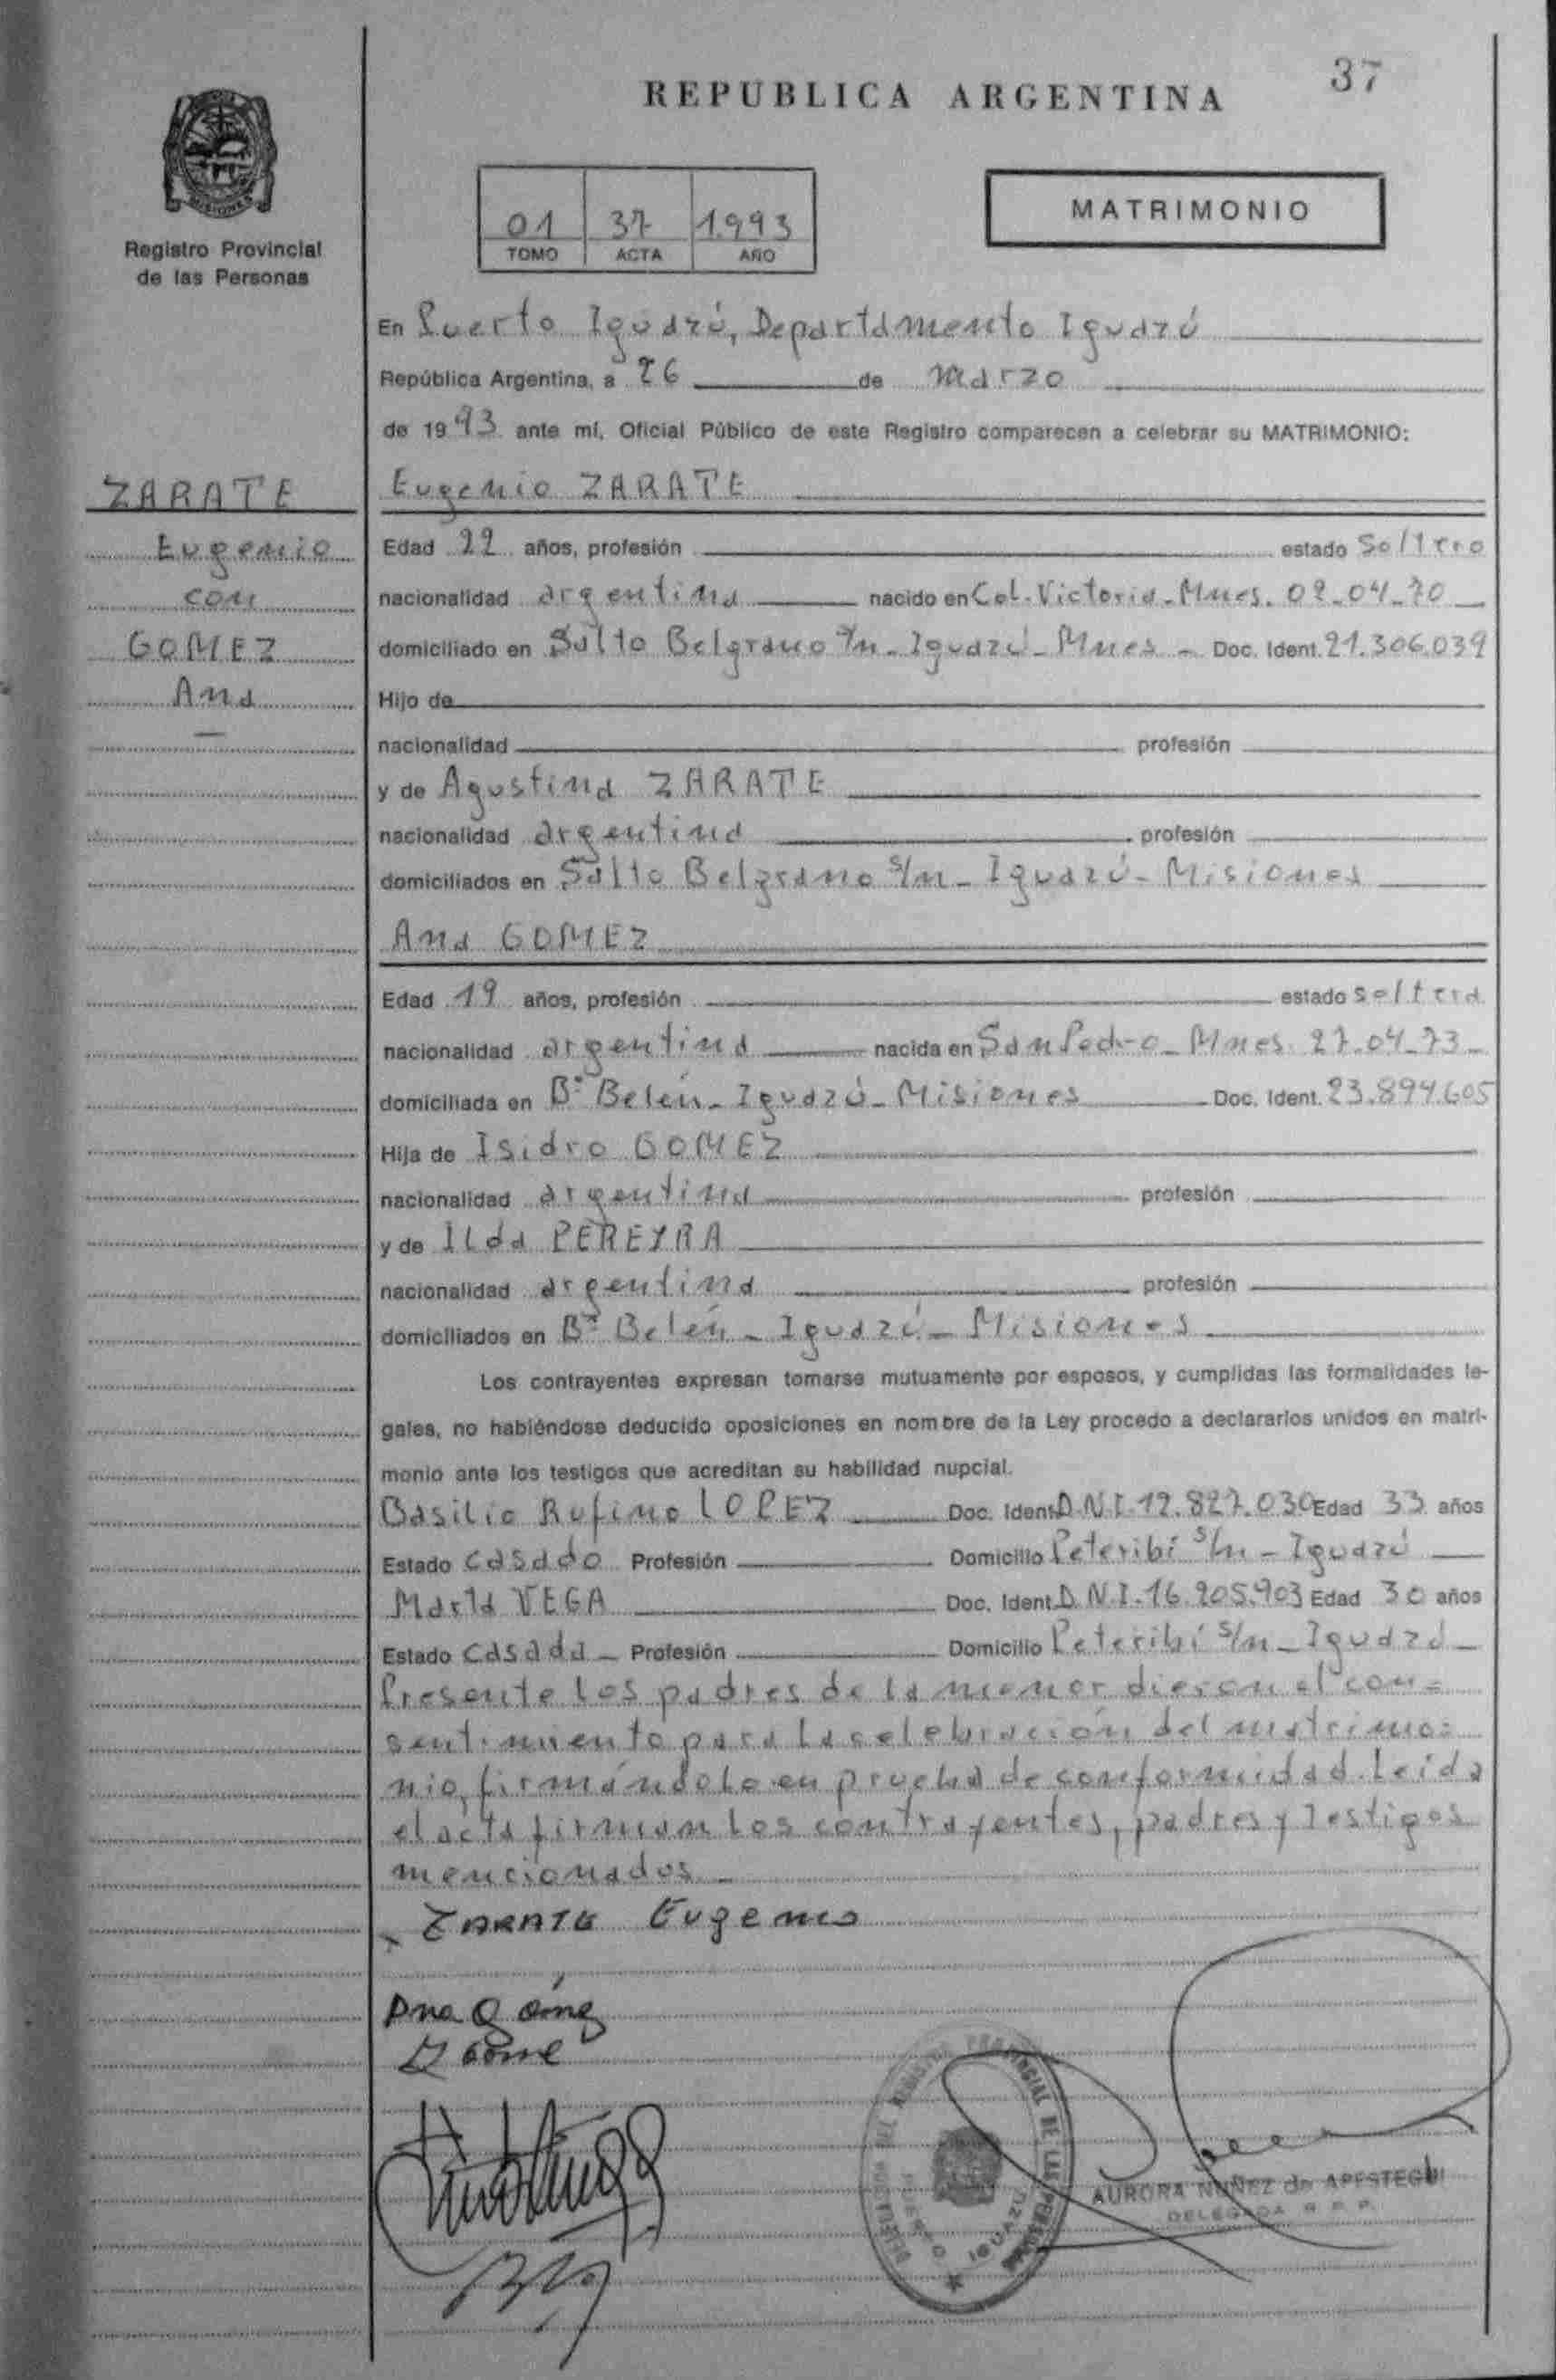 37
REPUBLICA ARGENTINA
MISIONES
Registro Provincial
de las Personas
01 37 1.993
TOMO ACTA AÑO
MATRIMONIO
En Puerto Iguazú, Departamento Iguazú
República Argentina, a 26 de marzo
de 1993 ante mí, Oficial Público de este Registro comparecen a celebrar su MATRIMONIO:
ZARATE
Eugenio
con
GOMEZ
Ana
Eugenio ZARATE
Edad 22 años, profesión estado Soltero
nacionalidad argentina nacido en Col. Victoria - Mnes. 02-04-70
domiciliado en Salto Belgrano s/n - Iguazú - Mnes - Doc. Ident. 21.306.039
Hijo de
nacionalidad profesión
y de Agustina ZARATE
nacionalidad argentina profesión
domiciliados en Salto Belgrano s/n - Iguazú - Misiones
Ana GOMEZ
Edad 19 años, profesión estado soltera
nacionalidad argentina nacida en San Pedro - Mnes. 27-04-73
domiciliada en Bº Belén - Iguazú - Misiones Doc. Ident. 23.894.605
Hija de Isidro GOMEZ
nacionalidad argentina profesión
y de Ilda PEREYRA
nacionalidad argentina profesión
domiciliados en Bº Belén - Iguazú - Misiones
Los contrayentes expresan tomarse mutuamente por esposos, y cumplidas las formalidades le-
gales, no habiéndose deducido oposiciones en nombre de la Ley procedo a declararlos unidos en matri-
monio ante los testigos que acreditan su habilidad nupcial.
Basilio Rufino LOPEZ Doc. Ident. D.N.I. 12.827.030 Edad 33 años
Estado casado Profesión Domicilio Peteribí s/n - Iguazú
Marta VEGA Doc. Ident. D.N.I. 16.205.903 Edad 30 años
Estado casada - Profesión Domicilio Peteribí s/n - Iguazú -
Presente los padres de la menor dieron el con=
sentimiento para la celebración del matrimo=
nio, firmándolo en prueba de conformidad. Leída
el acta firman los contrayentes, padres y testigos
mencionados. -
ZARATE Eugenio
Ana Gómez
REGISTRO PROVINCIAL DE LAS PERSONAS
PUERTO IGUAZU
AURORA NUÑEZ de APESTEGUI
DELEGADA R. P. P.